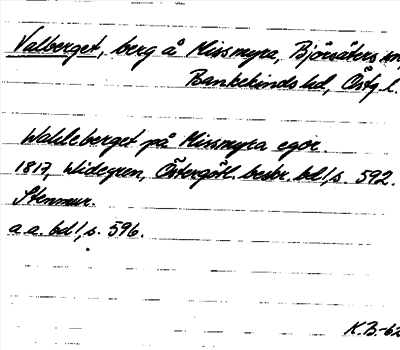 Valberget, berg å Missmyra, Björsäters sn
Bankekinds hd, Östg. l.
Wahleberget på Missmyra egor.
1817, Widegren, Östergötl. beskr. bd 1, s. 592.
Stenmur.
a.a. bd 1, s. 596.
K.B.-62